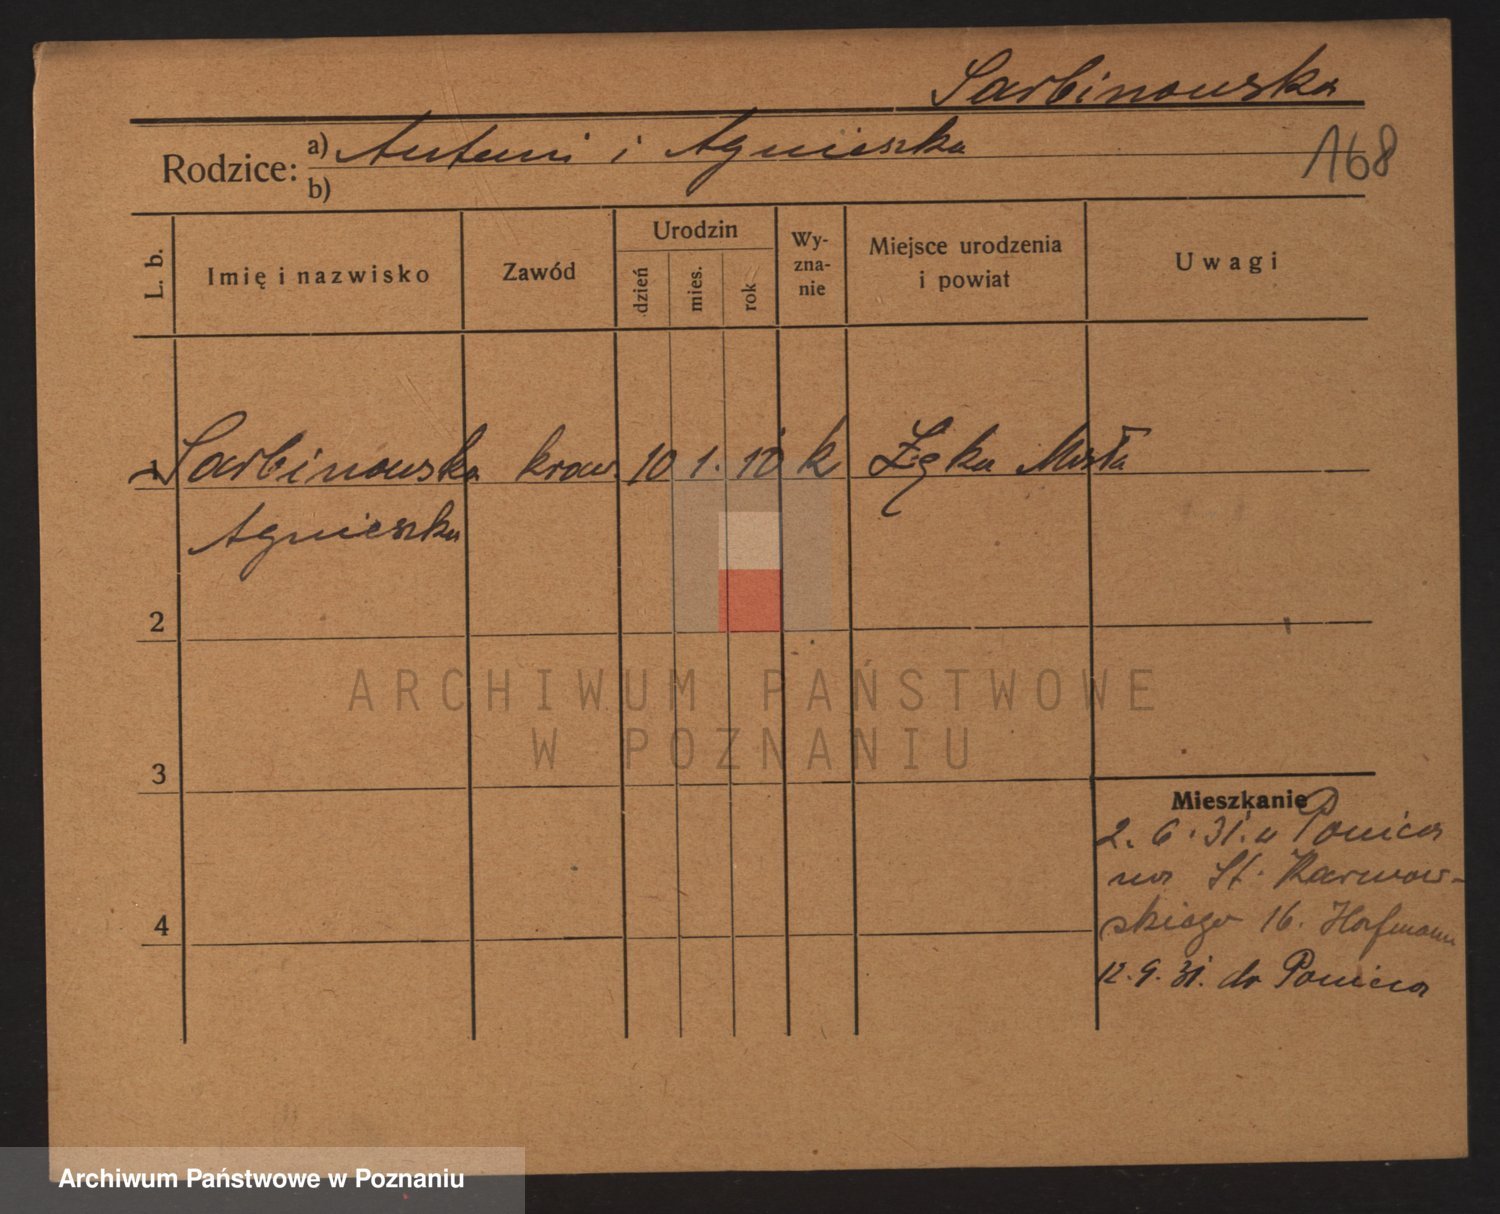 Sarbinowska
168
Rodzice: a) Antoni i Agnieszka
b)
L. b. Imię i nazwisko Zawód Urodzin dzień mies. rok Wy-zna-nie Miejsce urodzenia i powiat Uwagi
1 Sarbinowska kraw. 10 1. 10 k Łęka
Agnieszka
2
3
4
Mieszkanie
2. 6. 31. z Ponieca
na St. Karwow-
skiego 16. Hofmann
12. 9. 31. do Ponieca
ARCHIWUM PAŃSTWOWE
W POZNANIU
Archiwum Państwowe w Poznaniu